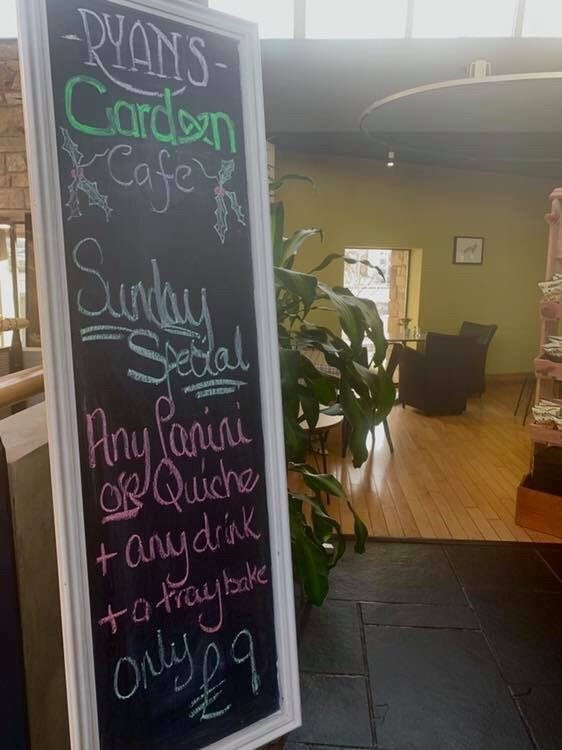 -RYAN'S-
Garden
Cafe
Sunday
Special
Any Panini
or Quiche
+ any drink
+ a traybake
only £9